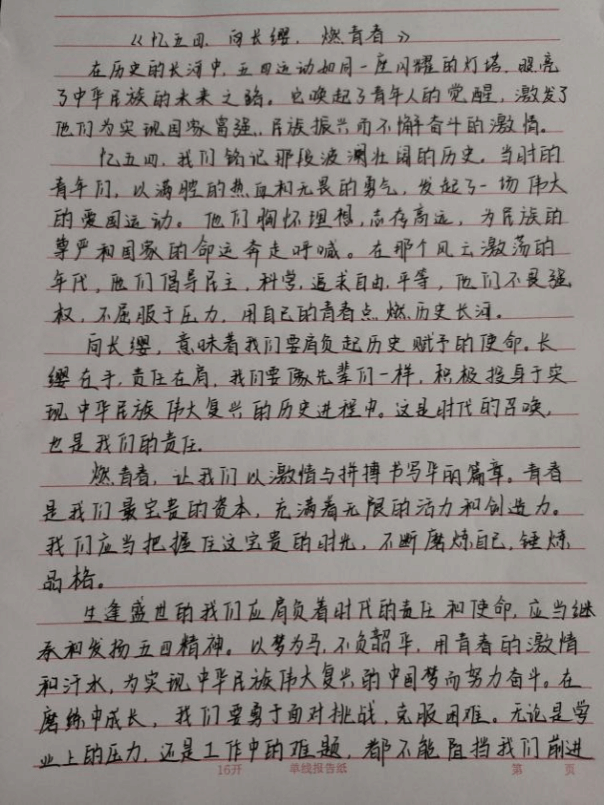 《忆五四、向长缨、燃青春》
在历史的长河中，五四运动如同一座闪耀的灯塔，照亮
了中华民族的未来之路。它唤起了青年人的觉醒，激发了
他们为实现国家富强、民族振兴而不懈奋斗的激情。
忆五四，我们铭记那段波澜壮阔的历史。当时的
青年们，以满腔的热血和无畏的勇气，发起了一场伟大
的爱国运动。他们胸怀理想，志存高远，为民族的
尊严和国家的命运奔走呼喊。在那个风云激荡的
年代，他们倡导民主，科学，追求自由，平等，他们不畏强
权，不屈服于压力，用自己的青春点燃历史长河。
向长缨，意味着我们要肩负起历史赋予的使命。长
缨在手，责任在肩，我们要像先辈们一样，积极投身于实
现中华民族伟大复兴的历史进程中。这是时代的召唤，
也是我们的责任.
燃青春，让我们以激情与拼搏书写华丽篇章。青春
是我们最宝贵的资本，充满着无限的活力和创造力。
我们应当把握住这宝贵的时光，不断磨炼自己，锤炼
品格。
生逢盛世的我们应肩负着时代的责任和使命，应当继
承和发扬五四精神。以梦为马，不负韶华，用青春的激情
和汗水，为实现中华民族伟大复兴的中国梦而努力奋斗。在
磨练中成长，我们要勇于面对挑战，克服困难。无论是学
业上的压力，还是工作中的难题，都不能阻挡我们前进
16开 单线报告纸 第 页